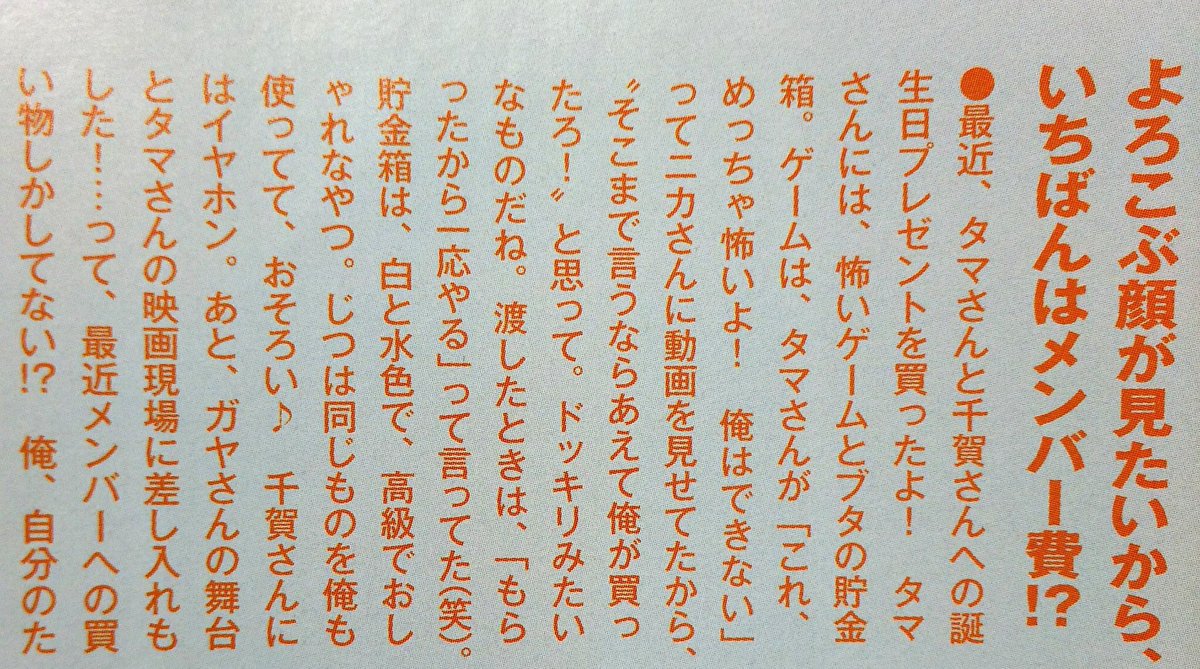 よろこぶ顔が見たいから、
いちばんはメンバー費!?
●最近、タマさんと千賀さんへの誕
生日プレゼントを買ったよ！　タマ
さんには、怖いゲームとブタの貯金
箱。ゲームは、タマさんが「これ、
めっちゃ怖いよ！　俺はできない」
ってニカさんに動画を見せてたから、
〝そこまで言うならあえて俺が買っ
たろ！〟と思って。ドッキリみたい
なものだね。渡したときは、「もら
ったから一応やる」って言ってた（笑）。
貯金箱は、白と水色で、高級でおし
ゃれなやつ。じつは同じものを俺も
使ってて、おそろい♪　千賀さんに
はイヤホン。あと、ガヤさんの舞台
とタマさんの映画現場に差し入れも
した！…って、最近メンバーへの買
い物しかしてない!?　俺、自分のた